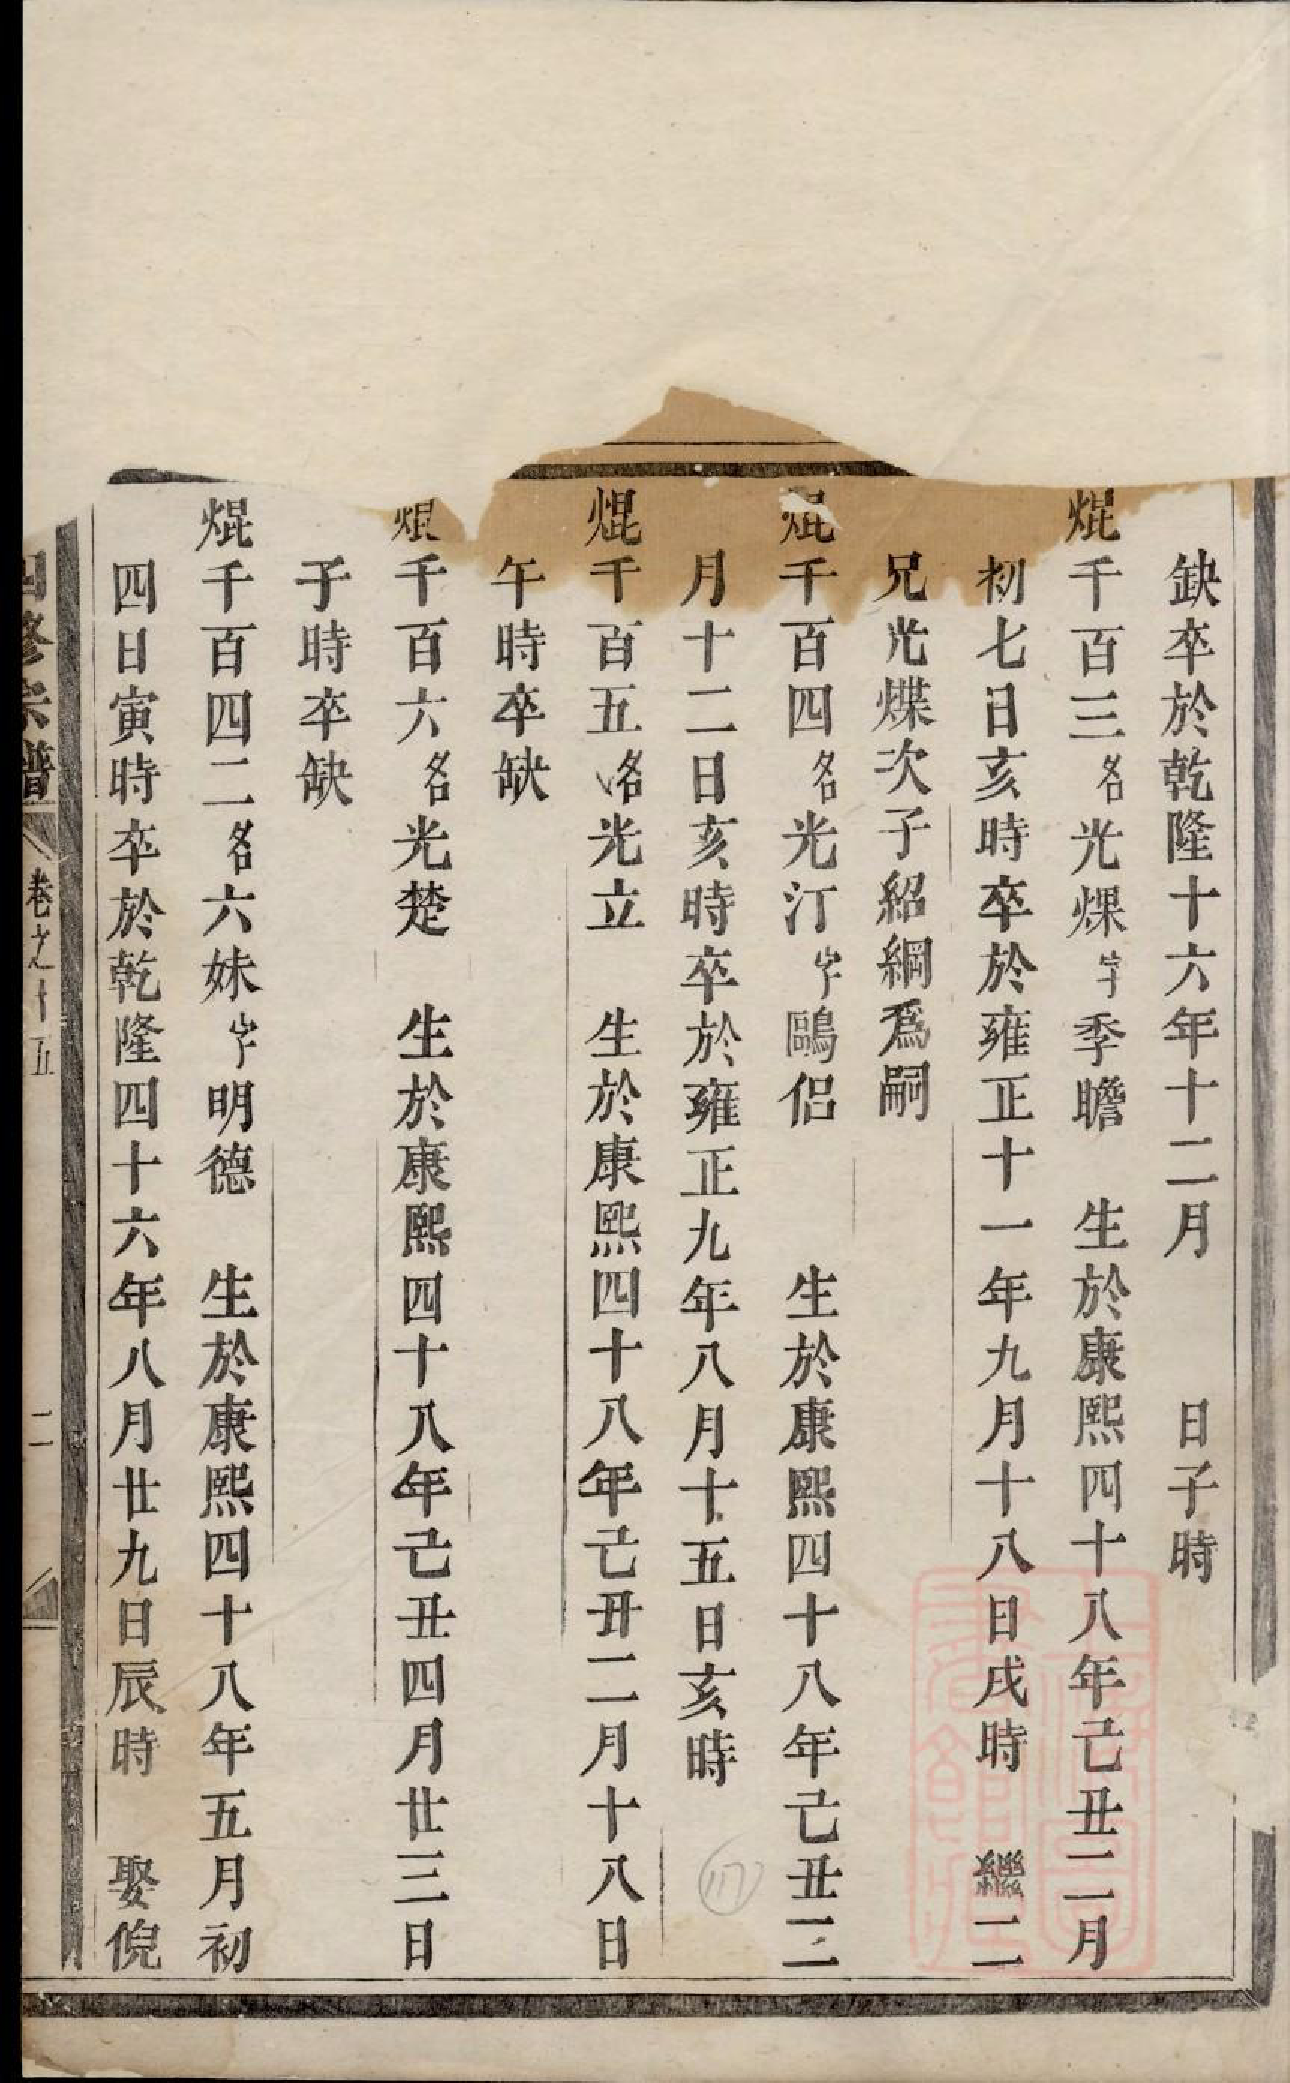 缺卒於乾隆十六年十二月　日子時
焜千百三名光煤字季瞻　生於康熙四十八年己丑二月
初七日亥時卒於雍正十一年九月十八日戌時　繼二
兄光煠次子紹綱爲嗣
焜千百四名光汀字鷗侶　生於康熙四十八年己丑二
月十二日亥時卒於雍正九年八月十五日亥時
焜千百五名光立　生於康熙四十八年己丑二月十八日
午時卒缺
焜千百六名光楚　生於康熙四十八年己丑四月廿三日
子時卒缺
焜千百四二名六妹字明德　生於康熙四十八年五月初
四日寅時卒於乾隆四十六年八月廿九日辰時　娶倪
四修宗譜　卷之十五　二
117